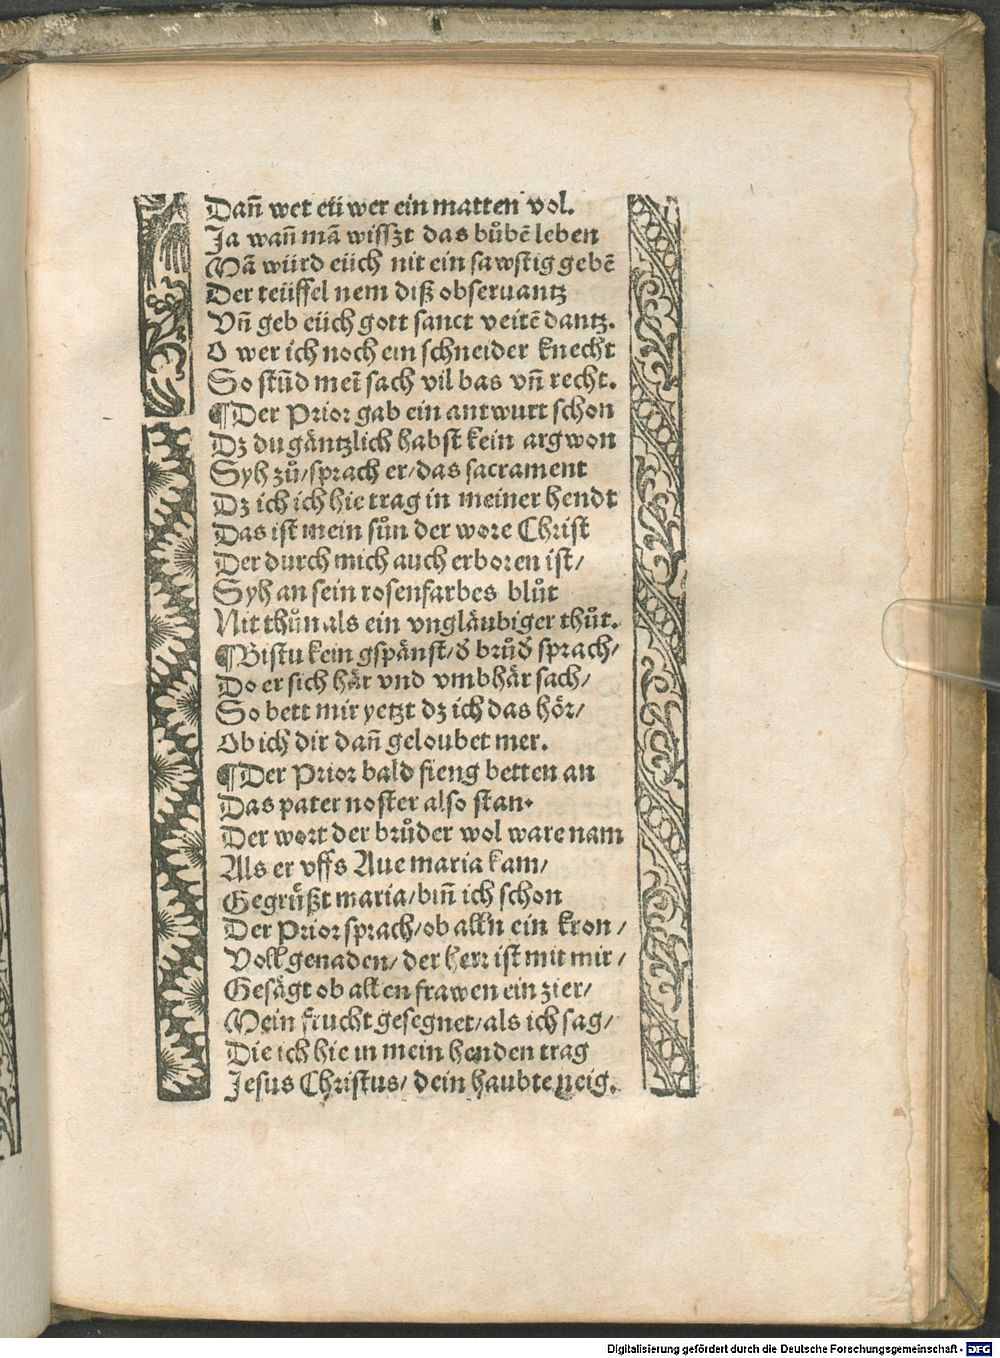 Dañ wet eü wer ein matten vol.
Ja wañ mã wisszt das bůbẽ leben
Mã würd eüch nit ein sawstig gebẽ
Der teüffel nem diß obseruantz
Vñ geb eüch gott sanct veitẽ dantz.
O wer ich noch ein schneider knecht
So stũd meĩ sach vil bas vñ recht.
¶Der Prior gab ein antwurt schon
Dz du gäntzlich habst kein argwon
Syh zů/sprach er/das sacrament
Dz ich ich hie trag in meiner hendt
Das ist mein sůn der wore Christ
Der durch mich auch erboren ist/
Syh an sein rosenfarbes blůt
Nit thůn als ein vngläubiger thůt.
¶Bistu kein gspänst/d̕ brůd̕ sprach/
Do er sich här vnd vmbhär sach/
So bett mir yetzt dz ich das hör/
Ob ich dir dañ geloubet mer.
¶Der Prior bald fieng betten an
Das pater noster also stan.
Der wort der brůder wol ware nam
Als er vffs Aue maria kam/
Gegrüßt maria/biñ ich schon
Der Prior sprach/ob alln ein kron/
Voll genaden/der herr ist mit mir/
Gesägt ob allen frawen ein zier/
Mein frucht gesegnet/als ich sag/
Die ich hie in mein henden trag
Jesus Christus/dein haubte neig.
Digitalisierung gefördert durch die Deutsche Forschungsgemeinschaft - DFG